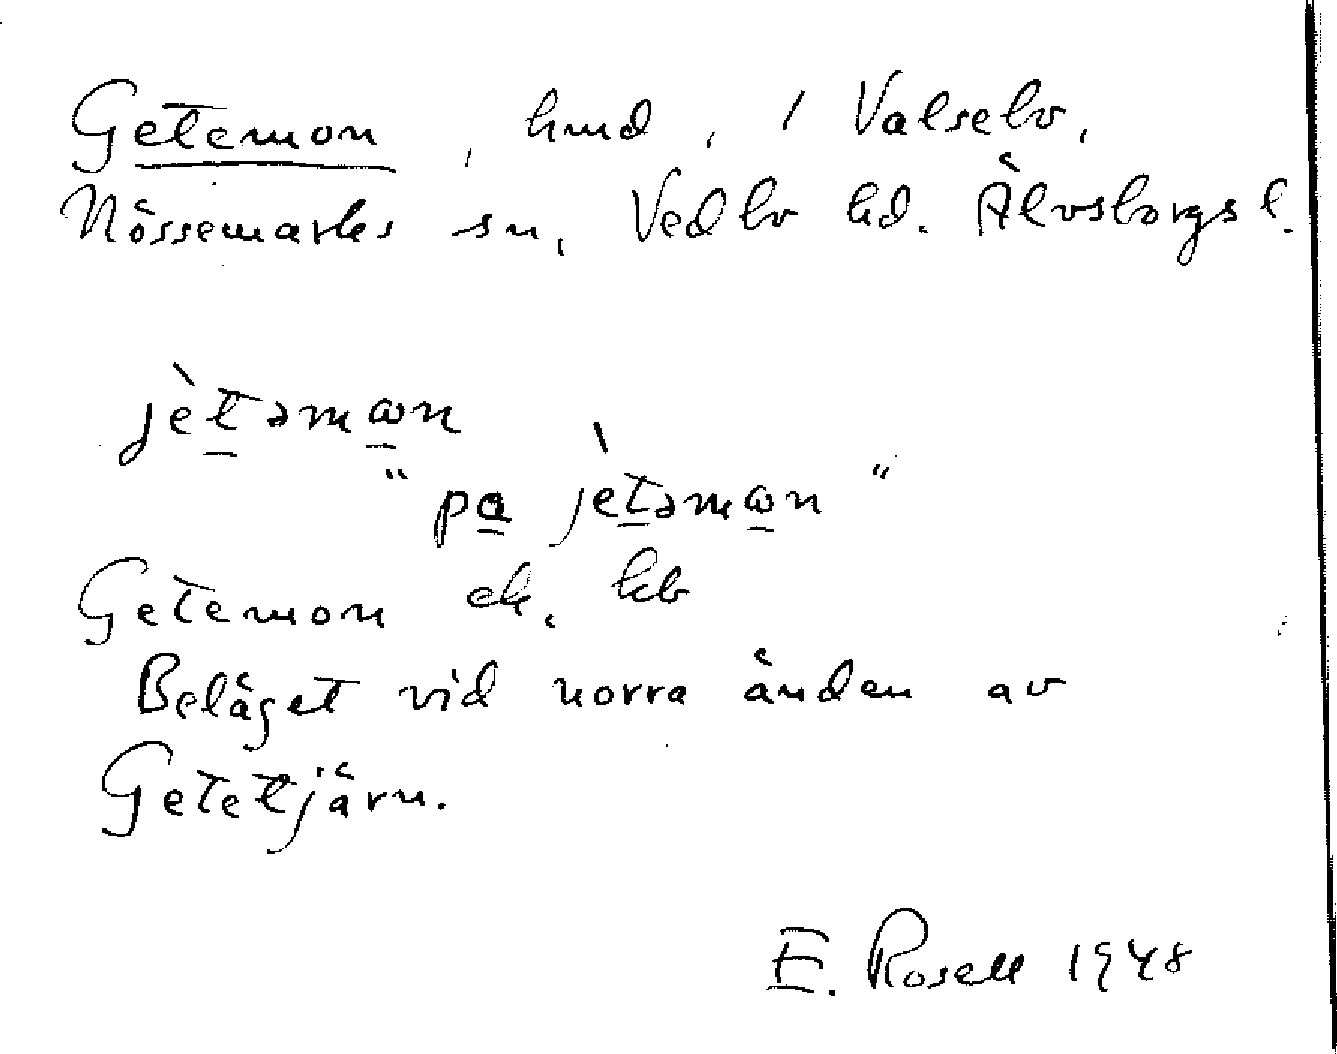 Getemon, hmd, / Valsebo,
Nössemarks sn, Vedbo hd. Älvsborgs l.
jètəmɷn
" pa jètəmɷn "
Getemon ek. kb
Beläget vid norra änden av
Getetjärn.
E. Rosell 1948